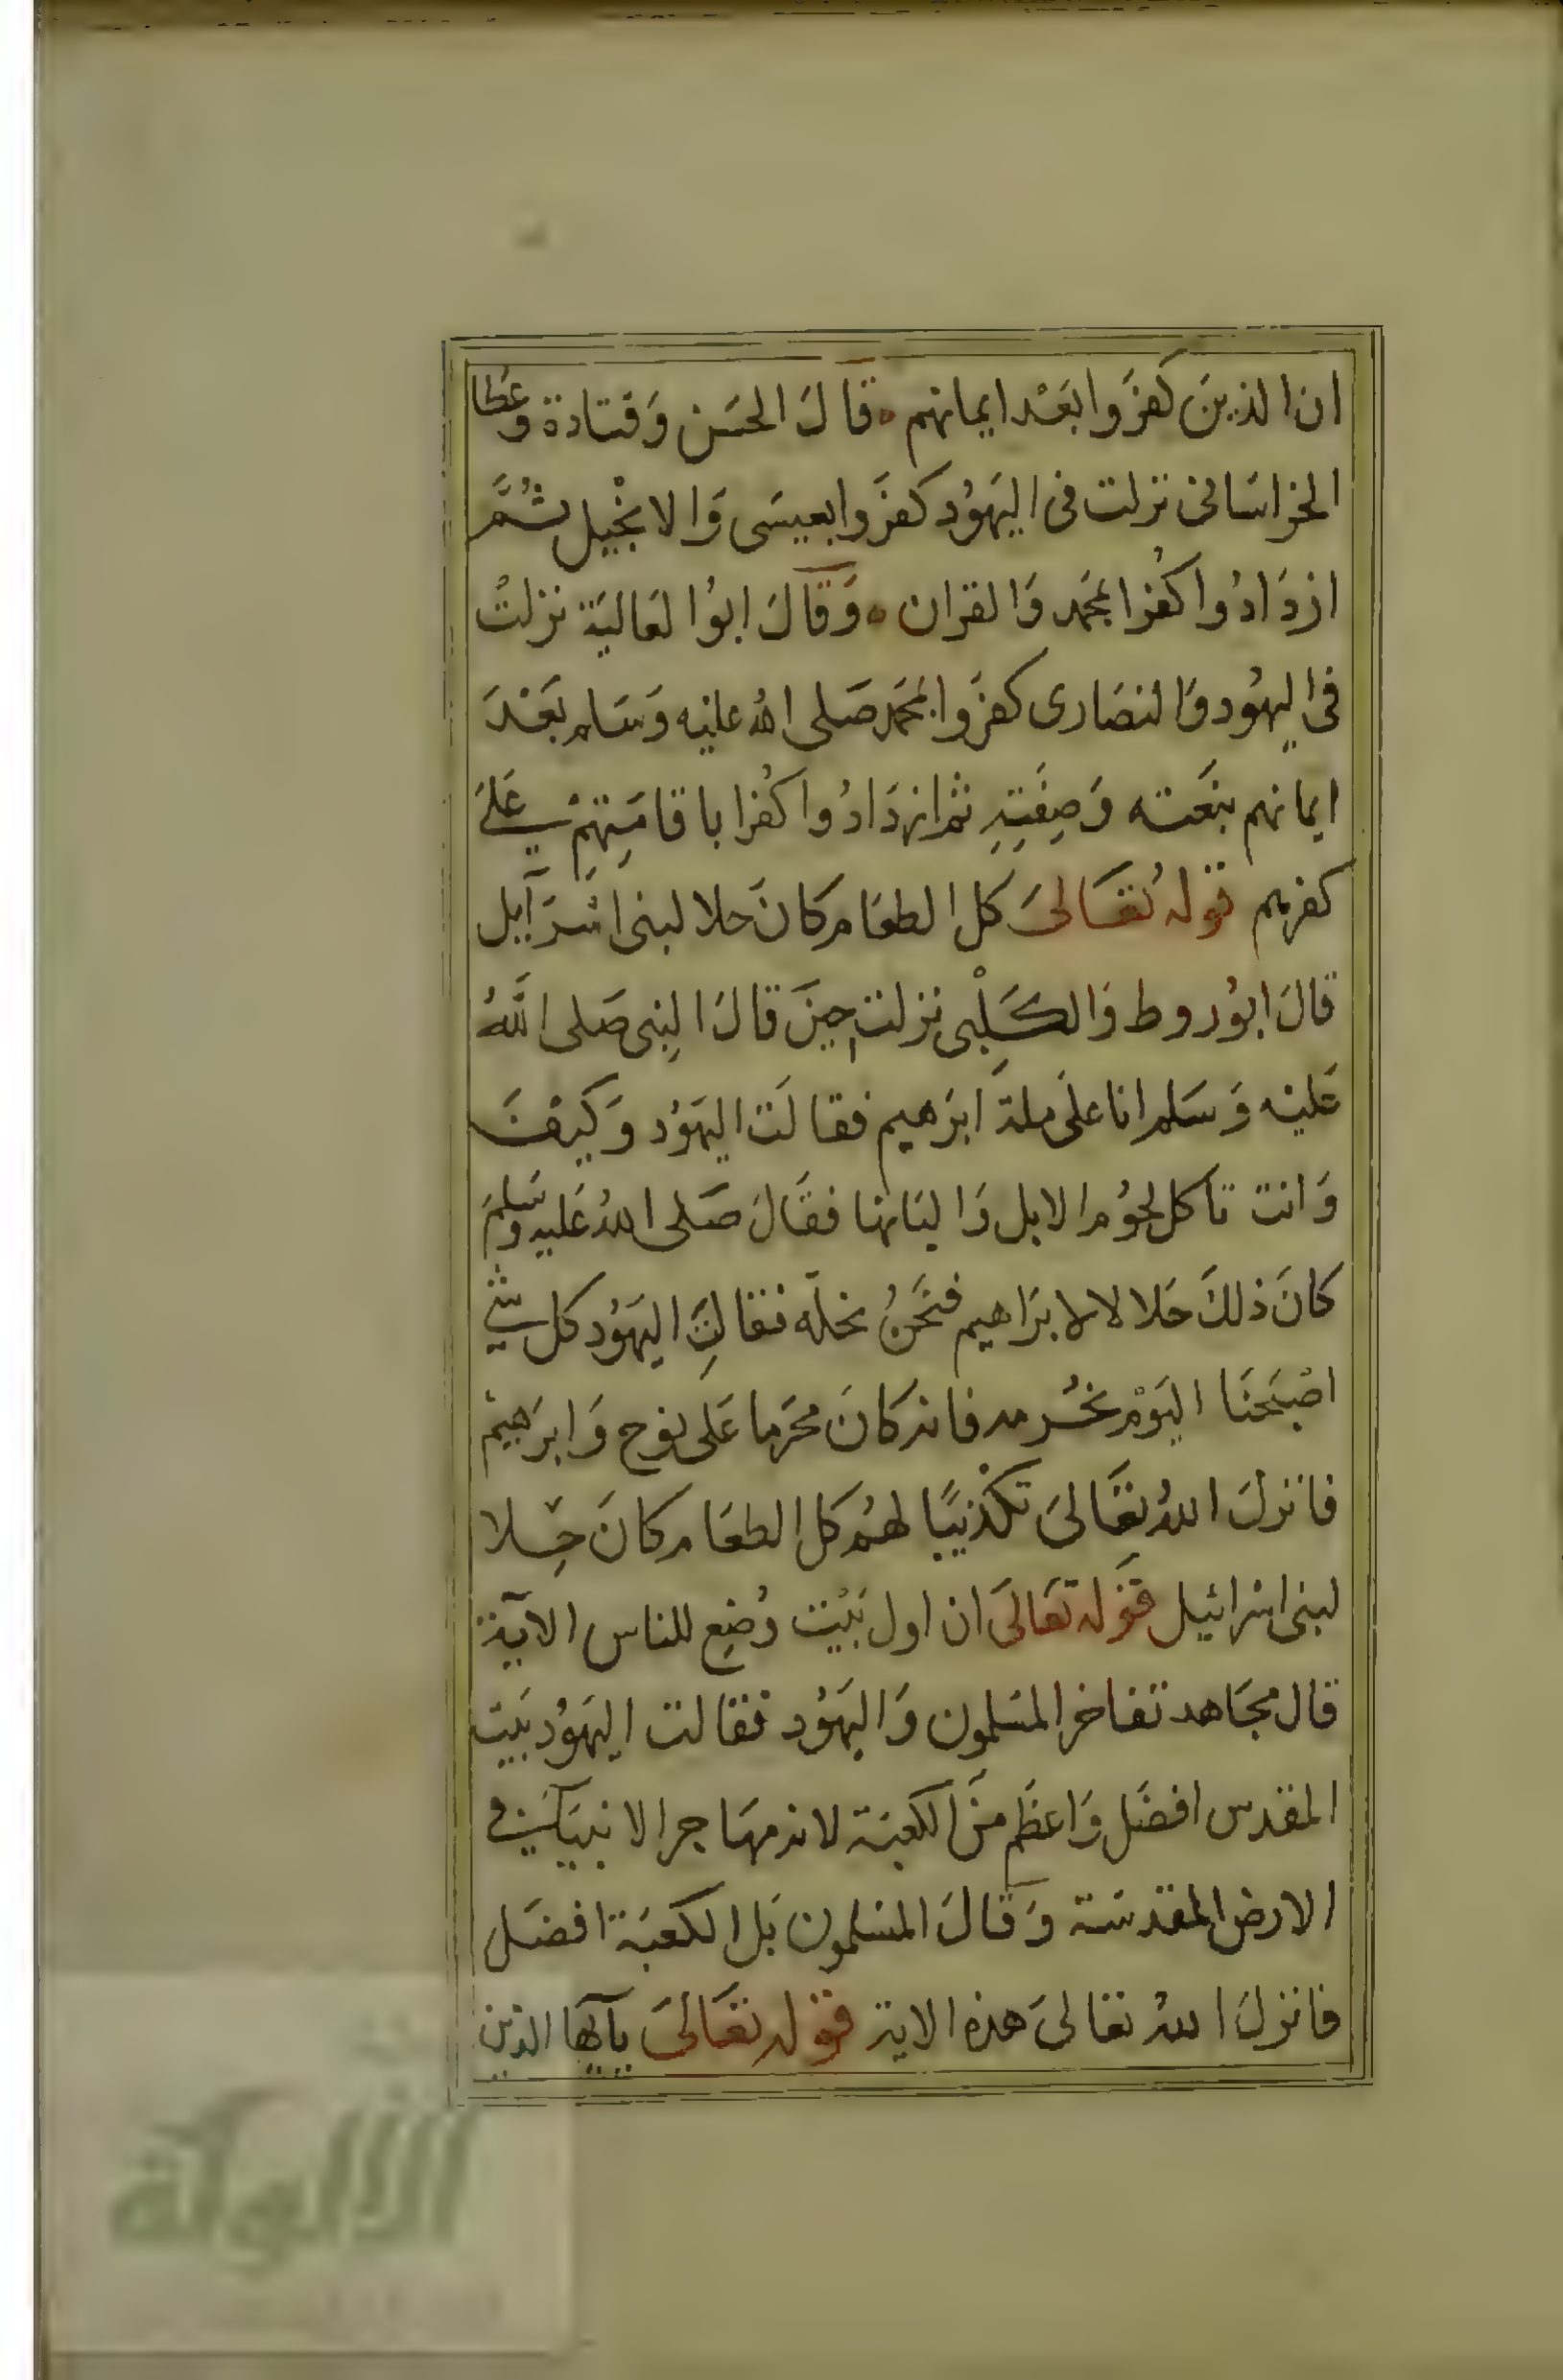 ان الذينَ كفَروا بعَد ايمانهم ه قالَ الحسَن وَقتادة وعَطا
الخراسَانى نزلت فى اليهوُد كفرَوا بعيسَى وَالانجْيل ثُمَّ
ازدَادُوا كفُرا بمحمَد وَالقران ه وَقالَ ابوُا لعَاليَة نزلتْ
فى اليهُود وَالنصَارى كفرَوا بمحَمد صَلى الله عليْه وَسَلم بعَدَ
ايمانهم بنَعته وَصِفَتِهِ ثم ازدَادُوا كفُرا باقامَتِهِمْ عَلىَ
كفرهم قوله تعَالىَ كل الطعَام كانَ حلا لبنى اسْرَآيل
قالَ ابوُروط وَالكَلِبْى نزلت حِينَ قالَ النِبى صَلى اللَّهُ
عَليْه وَسَلم انا علىَ ملة ابرَهيم فقالَت اليهَوُد وَكيفَ
وَانت تاكل لحوُم الابل وَالبَانها فقَالَ صَلى اللهُ عَليه وسَلمَ
كانَ ذلكَ حَلالا لابرَاهيم فنَحَنُ نحله فقالتِ اليهَوُد كل شى
اصْبَحنَا اليَوْم نحُرمه فانه كانَ محَرما عَلى نوح وَابرَهيمْ
فانزلَ اللهُ تعَالىَ تكْذيبًا لهُم كل الطعَام كانَ حِلا
لبنى اسْرائيل قوَله تعَالىَ ان اول بَيْت وُضِع للناس الآية
قال مجَاهد تفاخر المسَلمون وَاليهَوُد فقالت اليهَوُد بَيت
المقدس افضَل وَاعظَم منَ الكعبَة لانه مهَاجر الانبيَآ فِى
الارض المقدسَة وَقالَ المسَلمون بَل الكعبَة افضَل
فانزلَ اللهُ تعالىَ هذه الاية قوله تعَالىَ يآيهَا الذين
الألوكة